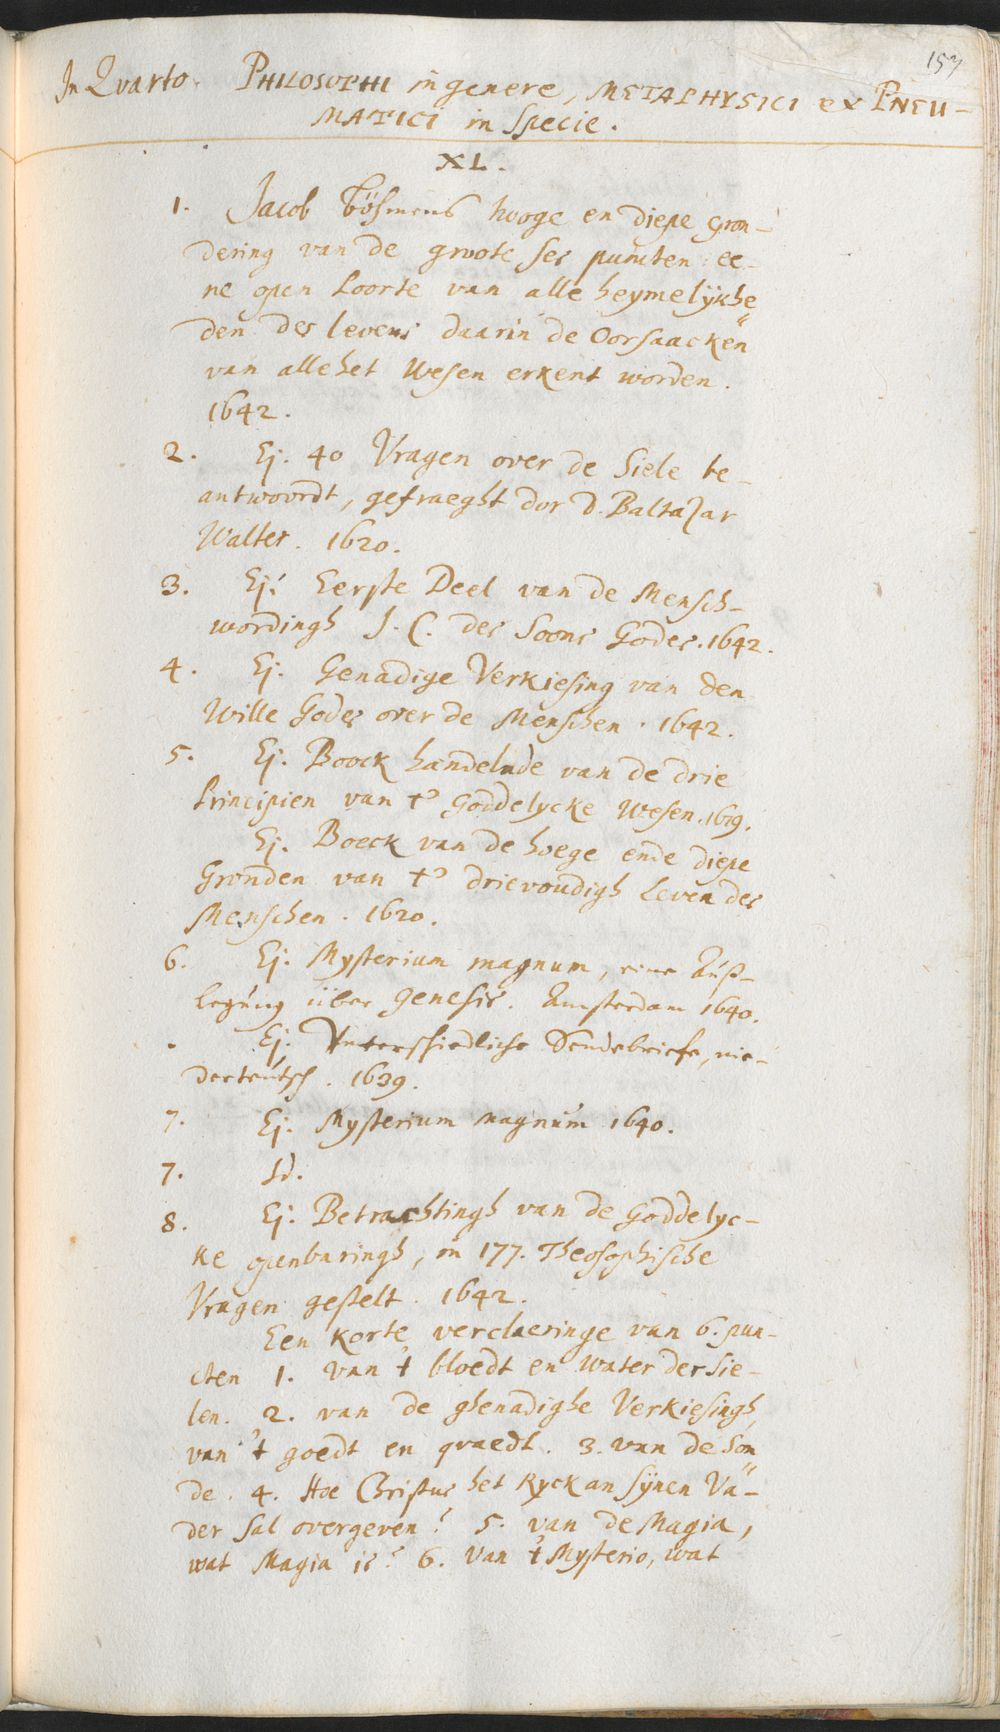 157
In Qvarto. PHILOSOPHI in genere, METAPHYSICI ex PNEU-
MATICI in Specie.
XL.
1. Jacob Böhmens hooge en diepe gron-
dering van de groote ses puncten: ee-
ne open Poorte van alle heymelÿkhe
den des levens daarin de Oorsaacken
van alle het Wesen erkent worden.
1642.
2. Ej. 40 Vragen over de Siele be-
antwoordt, gefraeght dor D. Baltazar
Walter. 1620.
3. Ej. Eerste Deel van de Mensch-
wordingh J. C. des Soons Godes. 1642.
4. Ej. Genadige Verkiesing van den
Wille Godes over de Menschen. 1642.
5. Ej. Boock handelnde van de drie
Principien van t' Goddelycke Wesen. 1619.
Ej. Boeck van de hoege ende diepe
Gronden van t' drievoudigh Leven des
Menschen. 1620.
6. Ej. Mysterium magnum, eine Auß-
legung über Genesis. Amsterdam 1640.
Ej. Unterschiedliche Sendebriefe, nie-
derteutsch. 1639.
7. Ej. Mysterium magnum 1640.
7. Id.
8. Ej. Betrachtingh van de Goddelyc-
ke openbaringh, in 177. Theosophische
Vragen gestelt. 1642.
Een korte verclaeringe van 6. pun-
cten 1. van 't bloedt en water der Sie-
len. 2. van de ghenadighe Verkiesingh,
van 't goedt en qvaedt. 3. van de Son
de. 4. Hoe Christus het Ryck an sÿnen Va-
der sal overgeven? 5. van de Magia,
wat Magia is? 6. Van 't Mysterio, wat